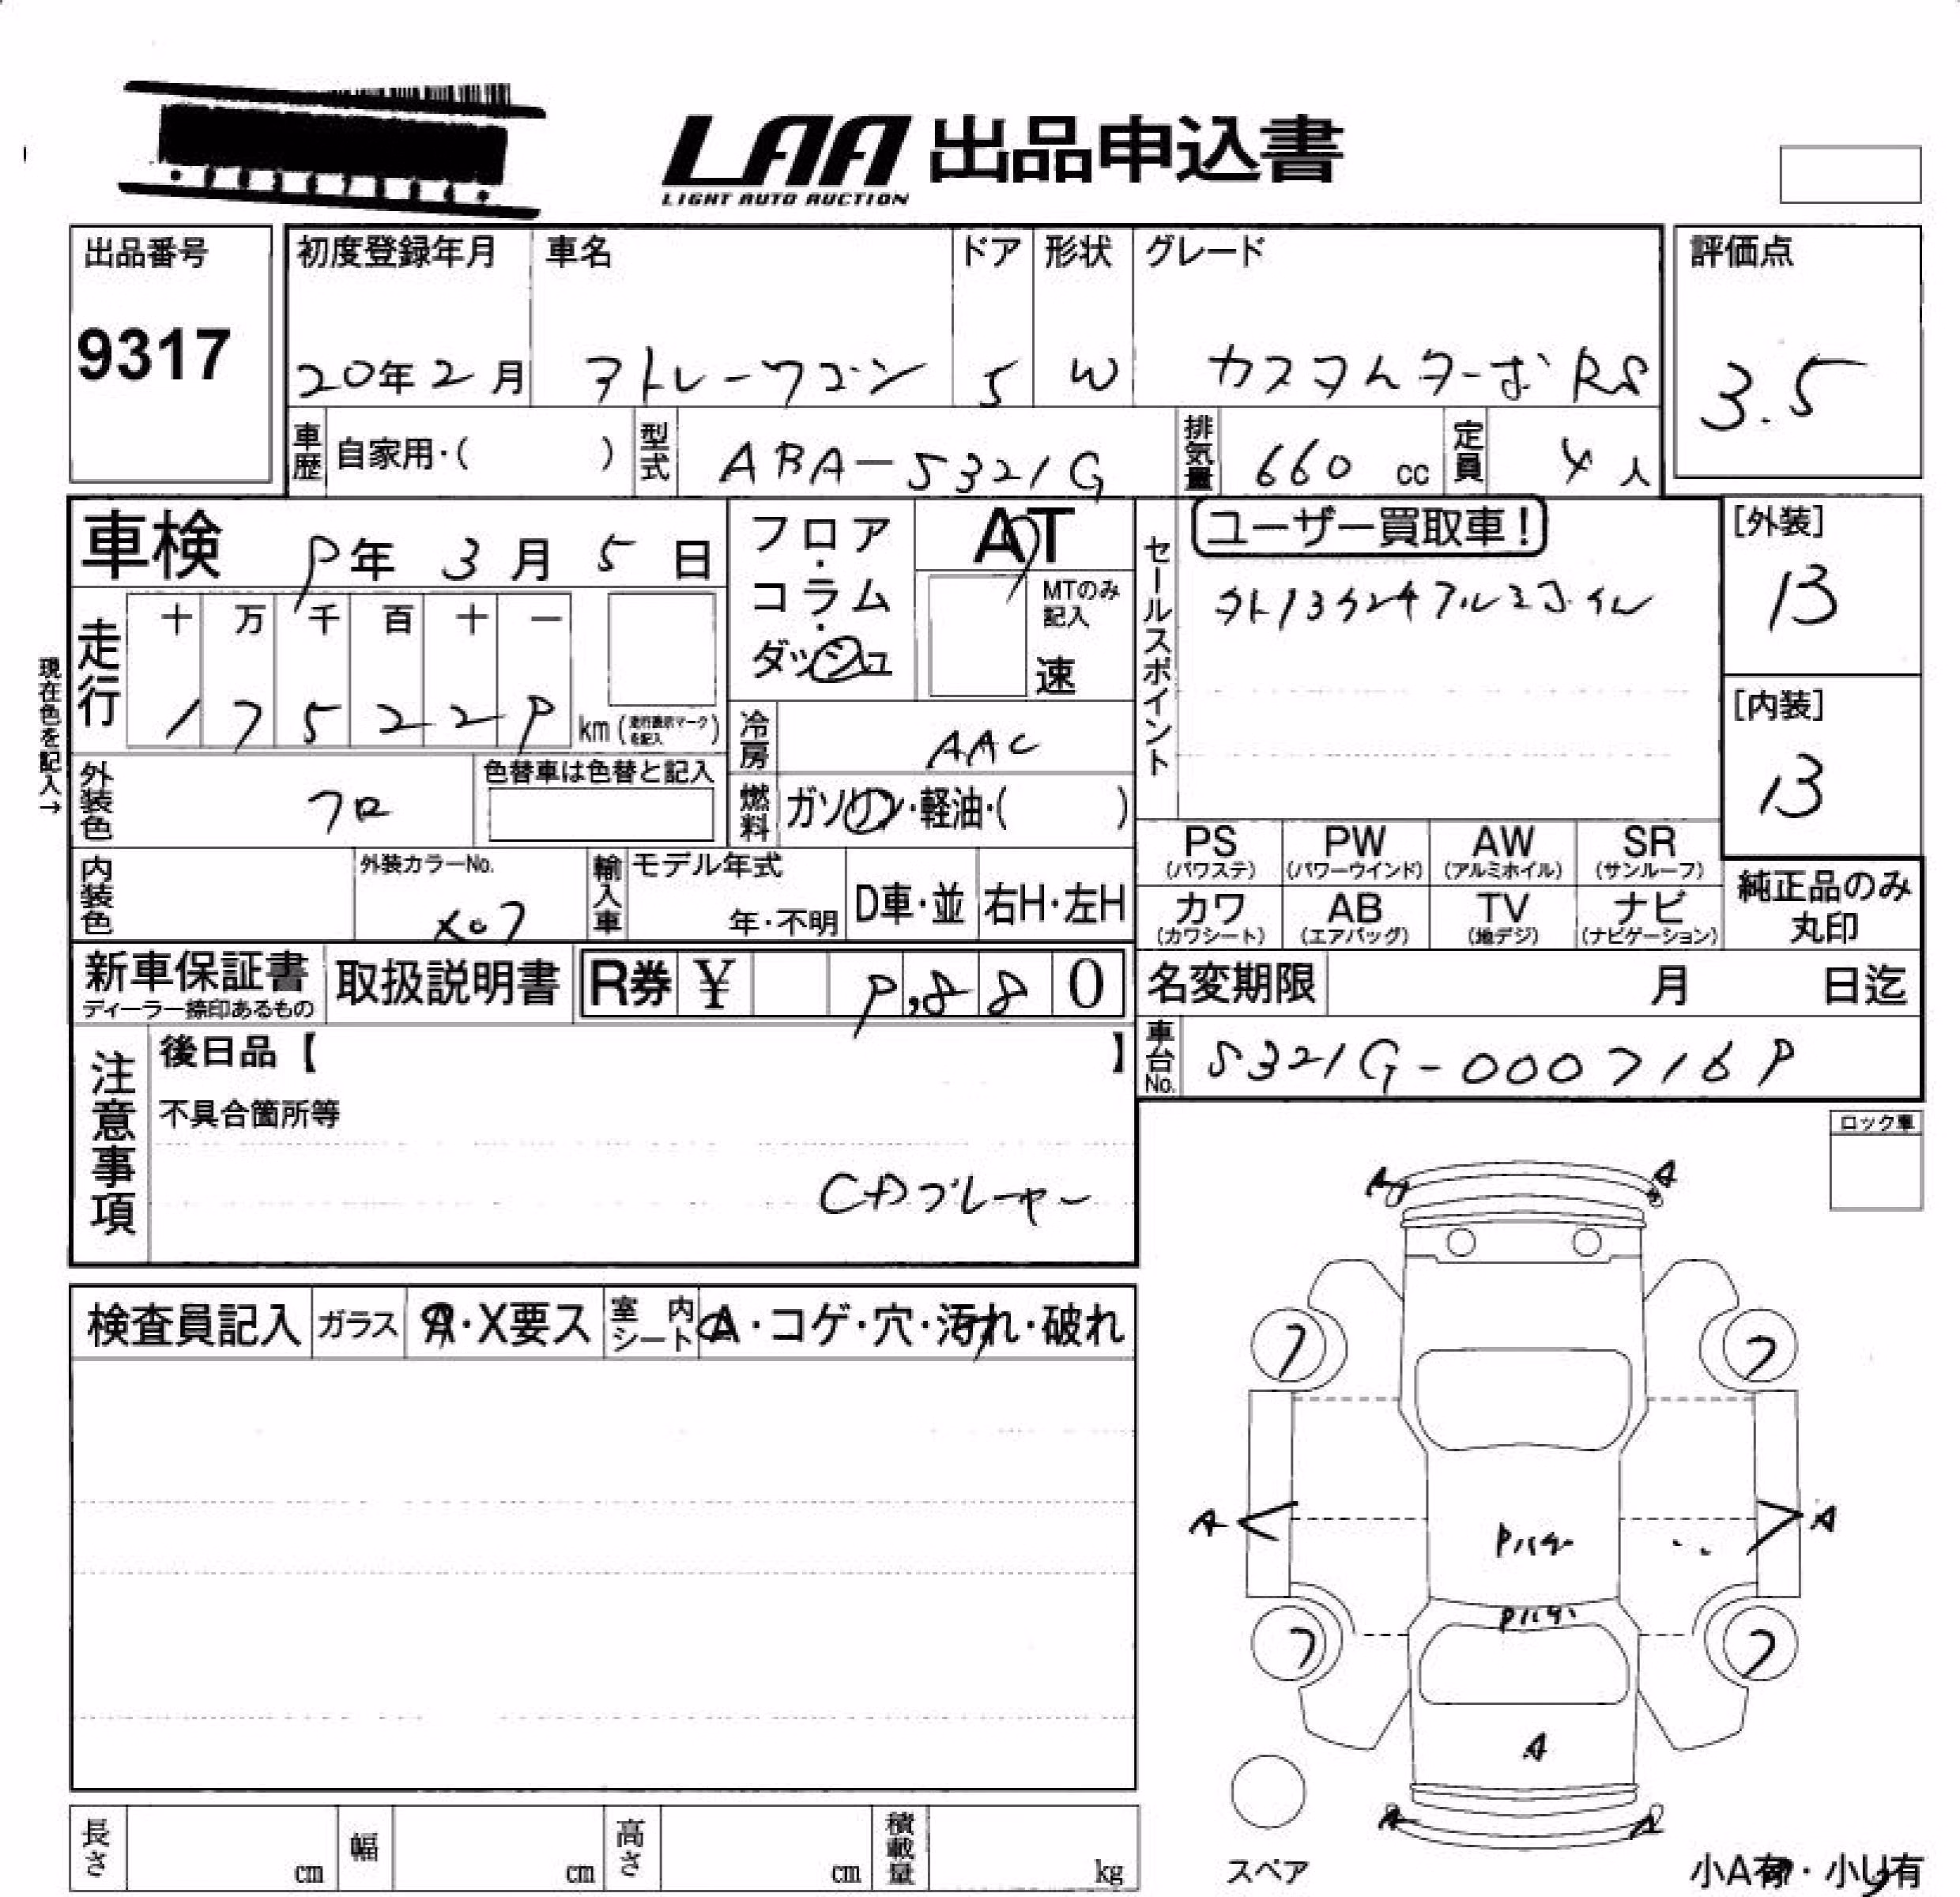 LAA 出品申込書
LIGHT AUTO AUCTION
出品番号
9317
初度登録年月
20年2月
車名
アトレーワゴン
ドア
5
形状
W
グレード
カスタムターボ RS
評価点
3.5
車歴
自家用・( )
型式
ABA-S321G
排気量
660 cc
定員
4人
車検 9年 3月 5日
フロア・コラム・ダッシュ
AT
MTのみ記入
速
セールスポイント
ユーザー買取車!
外13インチアルミホイル
[外装]
13
[内装]
13
現在色を記入→
走行
十 万 千 百 十 一
1 7 5 2 2 9 km (走行表示マークを記入)
冷房
AAC
外装色
クロ
色替車は色替と記入
燃料
ガソリン・軽油・( )
内装色
外装カラーNo.
X07
輸入車
モデル年式
年・不明
D車・並
右H・左H
PS
(パワステ)
PW
(パワーウインド)
AW
(アルミホイル)
SR
(サンルーフ)
カワ
(カワシート)
AB
(エアバッグ)
TV
(地デジ)
ナビ
(ナビゲーション)
純正品のみ
丸印
新車保証書
ディーラー捺印あるもの
取扱説明書
R券 ¥ 9,880
名変期限 月 日迄
車台No.
S321G-0007169
注意事項
後日品【 】
不具合箇所等
CDプレーヤー
ロック車
検査員記入
ガラス
A・X要ス
室内シート
A・コゲ・穴・汚れ・破れ
A
A
7
7
A
A
Pハゲ
Pハゲ
7
7
A
A
A
スペア
小A有・小U有
長さ cm
幅 cm
高さ cm
積載量 kg